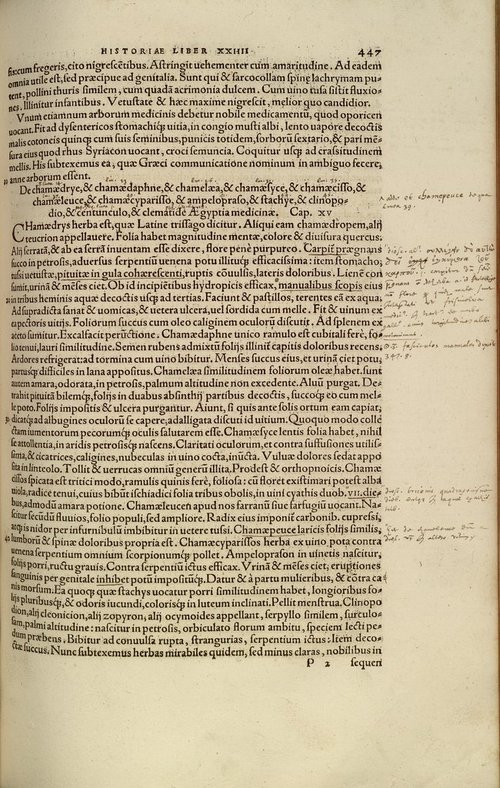 HISTORIAE LIBER XXIIII 447
fregeris, cito nigrescẽtibus. Astringit uehementer cum amaritudine. Ad eadem
omnia utile est, sed præcipue ad genitalia. Sunt qui & sarcocollam spinę lachrymam pu-
tent, pollini thuris similem, cum quadã acrimonia dulcem. Cum uino tusa sistit fluxio-
nes. Illinitur infantibus. Vetustate & hæc maxime nigrescit, melior quo candidior.
Vnum etiamnum arborum medicinis debetur nobile medicamentũ, quod oporicen
uocant. Fit ad dysentericos stomachiq́; uitia, in congio musti albi, lento uapore decoctis
malis cotoneis quinq; cum suis seminibus, punicis totidem, sorborũ sextario, & pari mẽ-
sura eius quod rhus Syriacon uocant, croci semuncia. Coquitur usq; ad crassitudinem
mellis. His subtexemus ea, quæ Græci communicatione nominum in ambiguo fecere,
10 anne arborum essent.
De chamædrye, & chamædaphne, & chamelæa, & chamæsyce, & chamæcisso, &
chamæleuce, & chamæcyparisso, & ampelopraso, & stachye, & clinopo-
dio, & centunculo, & clematide Ægyptia medicinæ. Cap. XV
CHamædrys herba est, quæ Latine trissago dicitur. Aliqui eam chamædropem, alij
teucrion appellauere. Folia habet magnitudine mentæ, colore & diuisura quercus.
Alij serratã, & ab ea serrã inuentam esse dixere, flore penè purpureo. Carpit̃ prægnans
succo in petrosis, aduersus serpentiũ uenena potu illituq́; efficacissima: item stomacho,
tussi uetustæ, pituitæ in gula cohærescenti, ruptis cõuulsis, lateris doloribus. Lienẽ con
sumit, urinã & mẽses ciet. Ob id incipiẽtibus hydropicis efficax, manualibus scopis eius
20 in tribus heminis aquæ decoctis usq; ad tertias. Faciunt & pastillos, terentes eã ex aqua,
Ad supradicta sanat & uomicas, & uetera ulcera, uel sordida cum melle. Fit & uinum ex
ea pectoris uitijs. Foliorum succus cum oleo caliginem oculorũ discutit. Ad splenem ex
aceto sumitur. Excalfacit perũctione. Chamædaphne unico ramulo est cubitali ferè, fo-
lijs tenui, lauri similitudine. Semen rubens admixtũ folijs illinit̃ capitis doloribus recens.
Ardores refrigerat: ad tormina cum uino bibitur. Menses succus eius, et urinã ciet potu,
partusq́; difficiles in lana appositus. Chamelæa similitudinem foliorum oleæ habet. sunt
autem amara, odorata, in petrosis, palmum altitudine non excedente. Aluũ purgat. De-
trahit pituitã bilemq́;, folijs in duabus absinthij partibus decoctis, succoq́; eo cum mel-
le poto. Folijs impositis & ulcera purgantur. Aiunt, si quis ante solis ortum eam capiat,
dicatq́; ad albugines oculorũ se capere, adalligata discuti id uitium. Quoquo modo colle
ctam iumentorum pecorumq́; oculis salutarem esse. Chamæsyce lentis folia habet, nihil
se attollentia, in aridis petrosisq́; nascens. Claritati oculorum, et contra suffusiones utilis-
sima, & cicatrices, caligines, nubeculas in uino cocta, inũcta. Vuluæ dolores sedat appo
sita in linteolo. Tollit & uerrucas omniũ generũ illita. Prodest & orthopnoicis. Chamæ
cissos spicata est tritici modo, ramulis quinis ferè, foliosa: cũ floret existimari potest alba
uiola, radice tenui, cuius bibũt ischiadici folia tribus obolis, in uini cyathis duob. VII. die-
bus, admodũ amara potione. Chamæleucen apud nos farranũ siue farfugiũ uocant. Na-
scitur secũdũ fluuios, folio populi, sed ampliore. Radix eius imponit̃ carbonib. cupressi,
atq; is nidor per infurnibulũ imbibitur in uetere tussi. Chamæpeuce laricis folijs similis,
40 lumborũ & spinæ doloribus propria est. Chamæcyparissos herba ex uino pota contra
uenena serpentium omnium scorpionumq́; pollet. Ampeloprason in uinetis nascitur,
folijs porri, ructu grauis. Contra serpentiũ ictus efficax. Vrinã & mẽses ciet, eruptiones
sanguinis per genitale inhibet potũ impositũq́;. Datur & à partu mulieribus, & cõtra ca
nis morsum. Ea quoq; quæ stachys uocatur porri similitudinem habet, longioribus fo-
lijs pluribusq́;, & odoris iucundi, colorisq́; in luteum inclinati. Pellit menstrua. Clinopo
dion, alij cleonicion, alij zopyron, alij ocymoides appellant, serpyllo similem, surculo-
sam, palmi altitudine: nascitur in petrosis, orbiculato florum ambitu, speciem lecti pe-
dum præbens. Bibitur ad conuulsa, rupta, strangurias, serpentium ictus: Item deco-
ctæ succus. Nunc subtexemus herbas mirabiles quidem, sed minus claras, nobilibus in
P 2 sequen